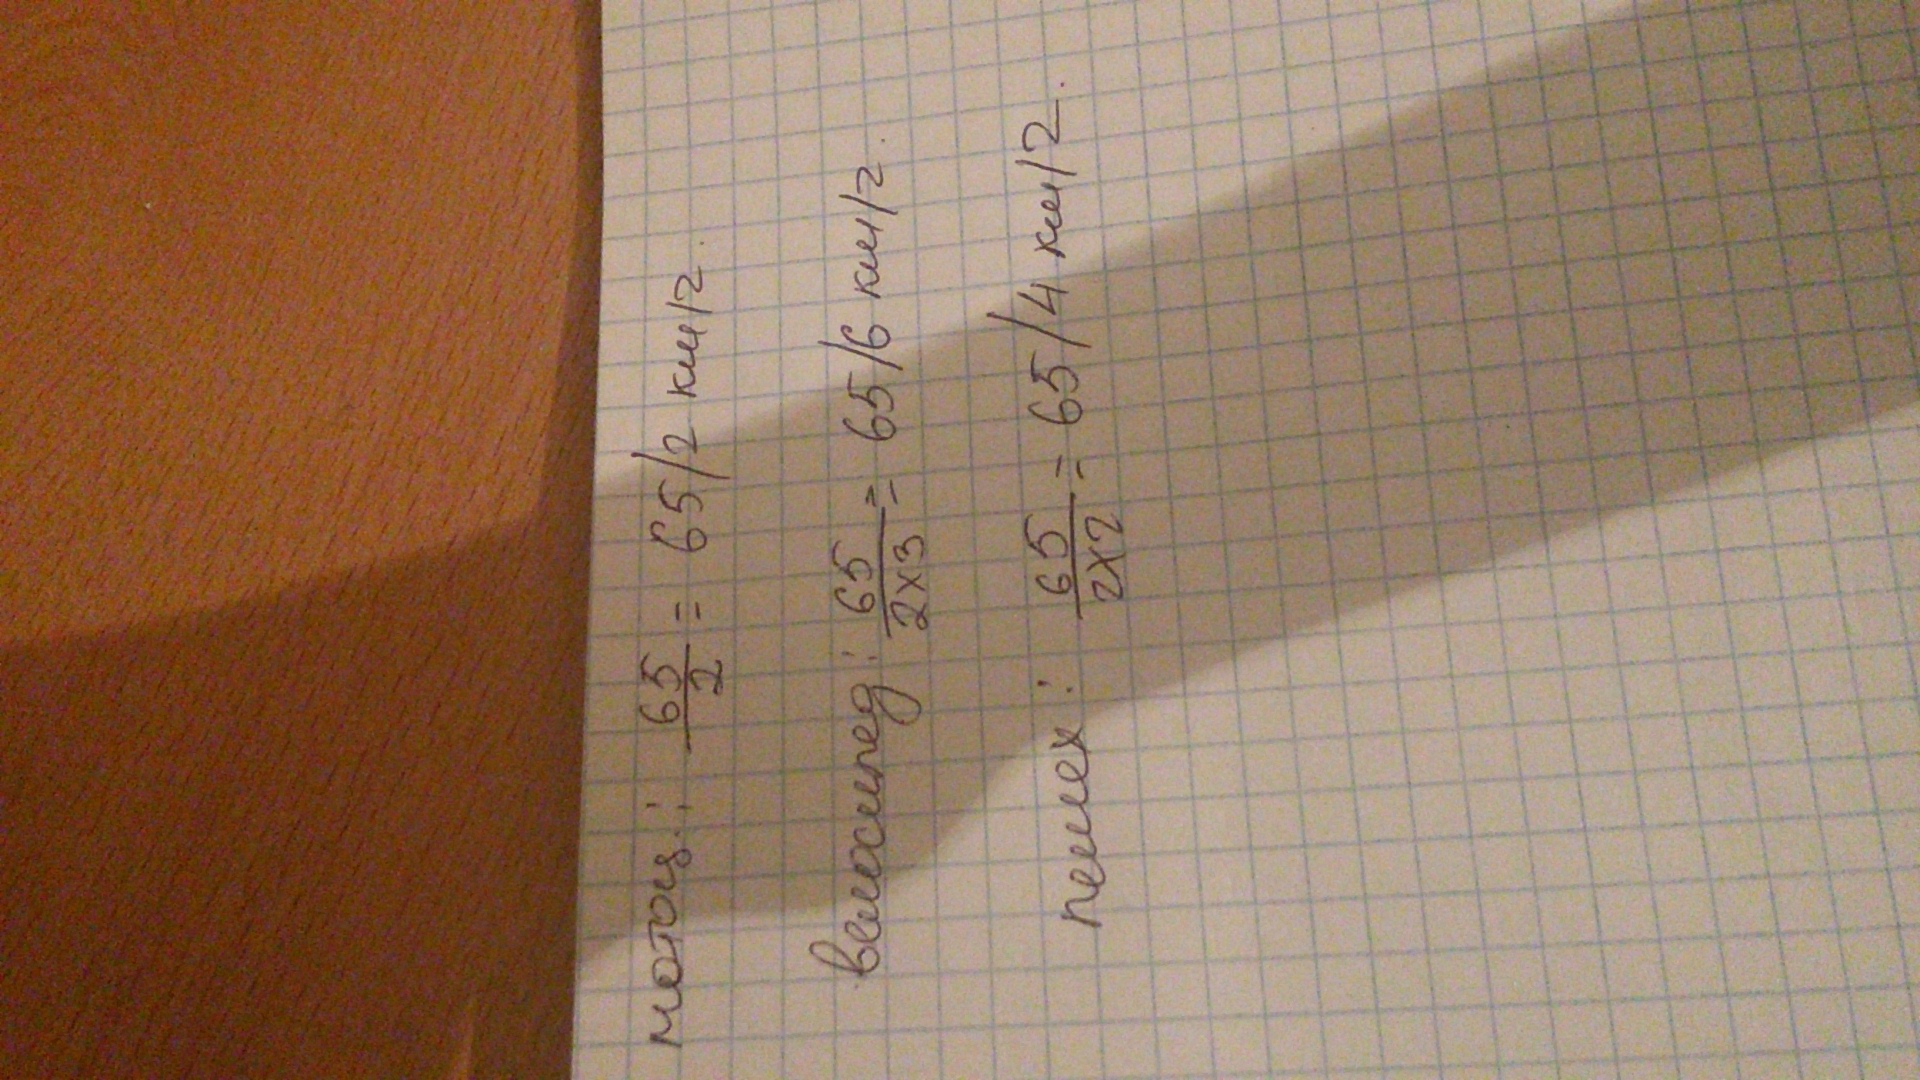 мотоц.: 65/2 = 65/2 км/г.
велосипед: 65/2x3 = 65/6 км/г.
пешех: 65/2x2 = 65/4 км/г.